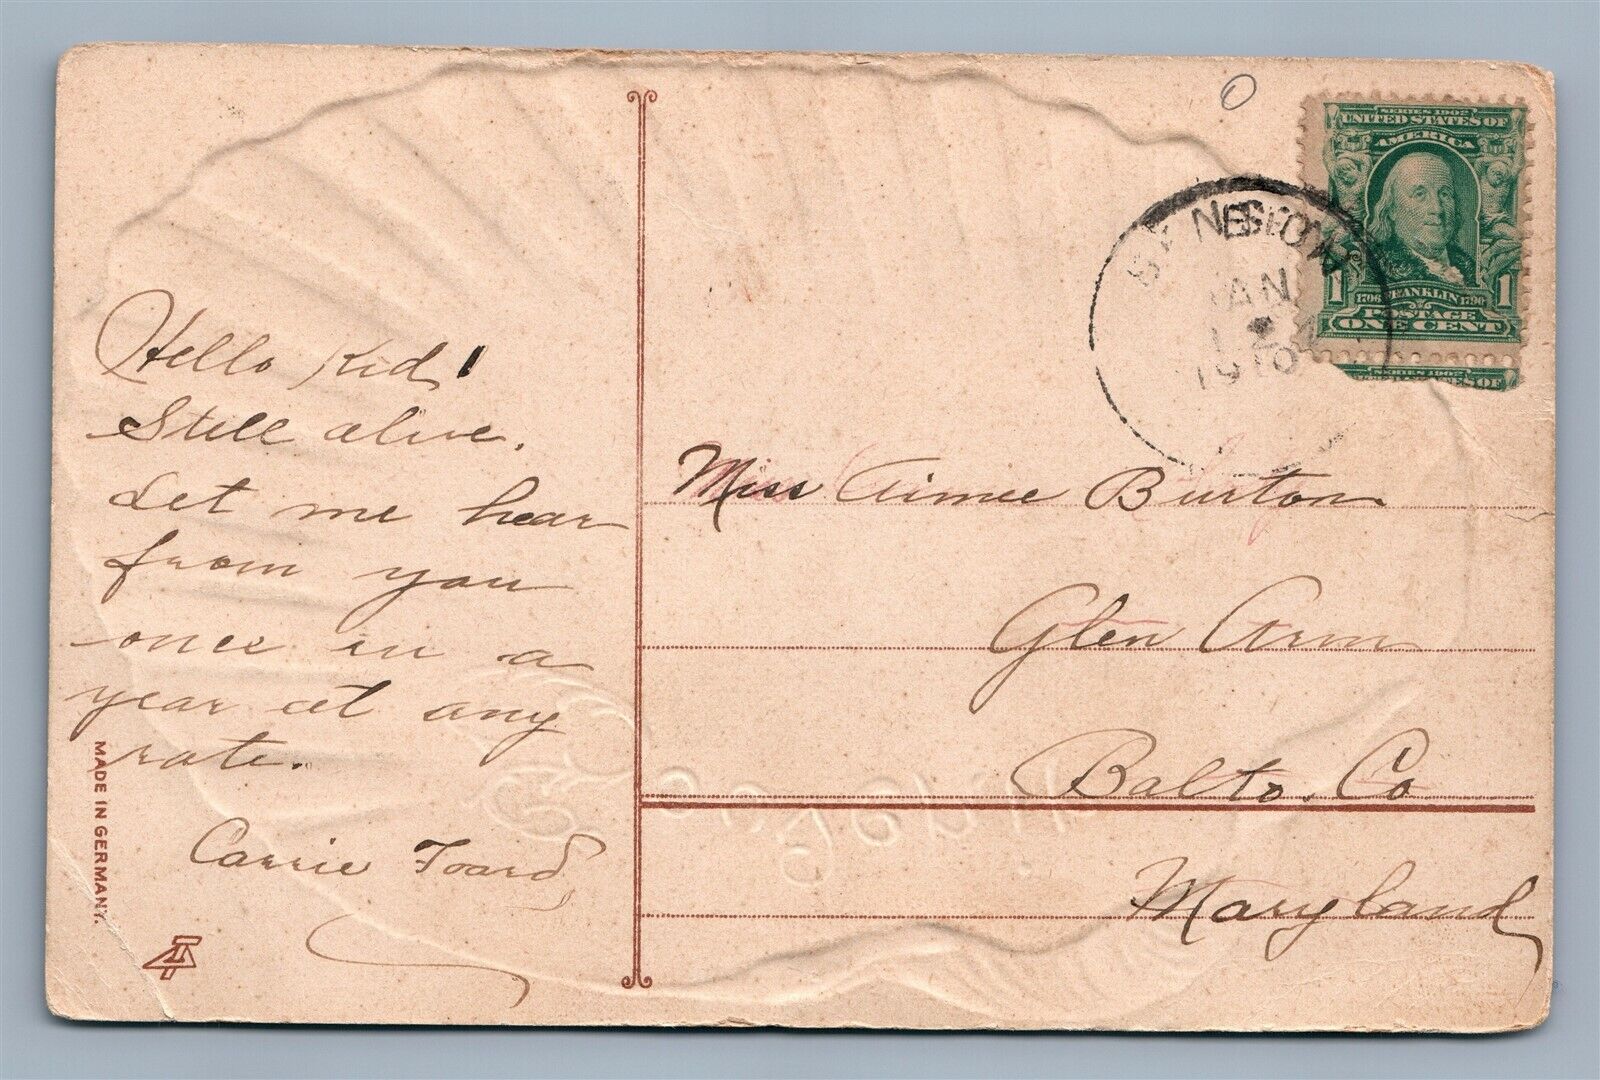 Hello Kid!
Still alive.
Let me hear
from you
once in a
year at any
rate.
Carrie Toard
MADE IN GERMANY.
SERIES 1902
UNITED STATES OF
AMERICA
1
1706 FRANKLIN 1790
1
POSTAGE
ONE CENT
SERIES 1902
JAN
1910
Miss Aimee Burton
Glen Arm
Balto. Co
Maryland